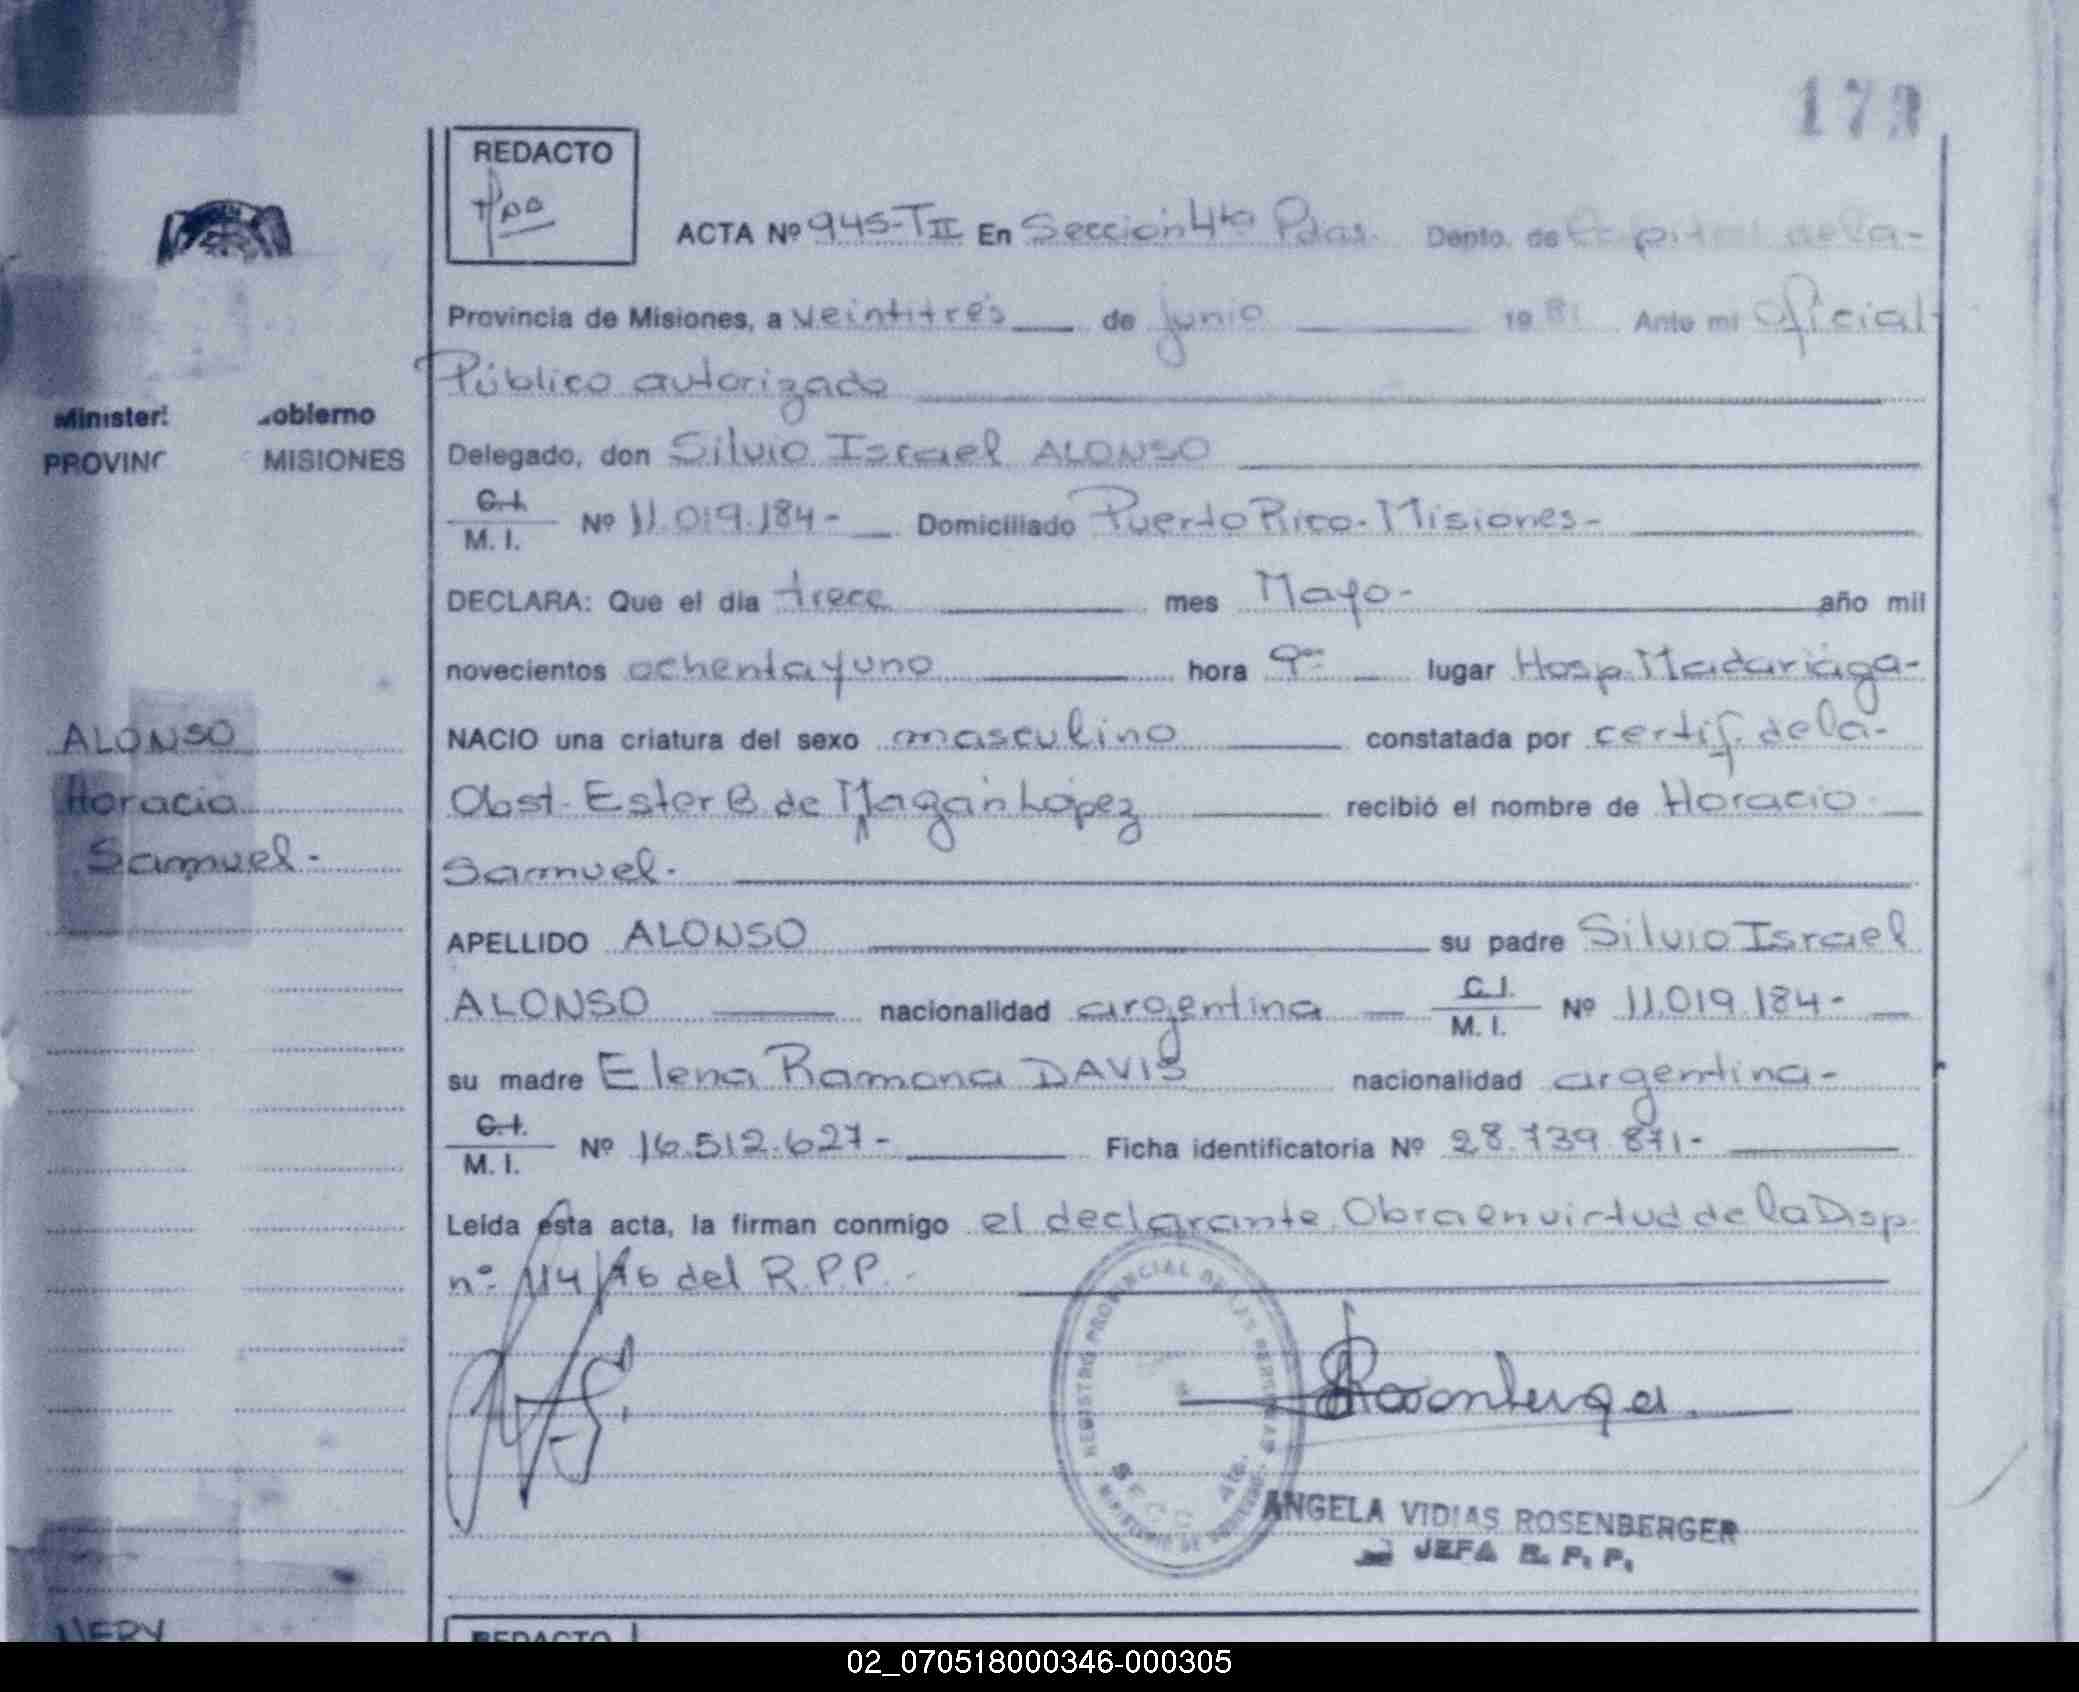 173
REDACTO
ACTA Nº 945-TII En Sección 4ta Pdas. Depto. de Capital de la-
Provincia de Misiones, a veintitrés de junio 1981 Ante mi Oficial-
Público autorizado
Ministeri obierno
PROVINC MISIONES
Delegado, don Silvio Israel ALONSO
C.I. M. I. Nº 11.019.184- Domiciliado Puerto Rico-Misiones-
DECLARA: Que el día trece mes Mayo- año mil
novecientos ochenta y uno hora 9 lugar Hosp. Madariaga-
ALONSO
Horacio
Samuel-
NACIO una criatura del sexo masculino constatada por certif. de la-
Obst. Ester B. de Magan López recibió el nombre de Horacio
Samuel-
APELLIDO ALONSO su padre Silvio Israel
ALONSO nacionalidad argentina C.I. M. I. Nº 11.019.184-
su madre Elena Ramona DAVIS nacionalidad argentina-
C.I. M. I. Nº 16.512.627- Ficha identificatoria Nº 28.739.871-
Leída esta acta, la firman conmigo el declarante. Obra en virtud de la Disp.
nº 114/76 del R.P.P.-
REGISTRO PROVINCIAL DE LAS PERSONAS
SECC 4ta.
Rosenberger
ANGELA VIDIAS ROSENBERGER
JEFA R. P. P.
NERY
REDACTO
02_070518000346-000305